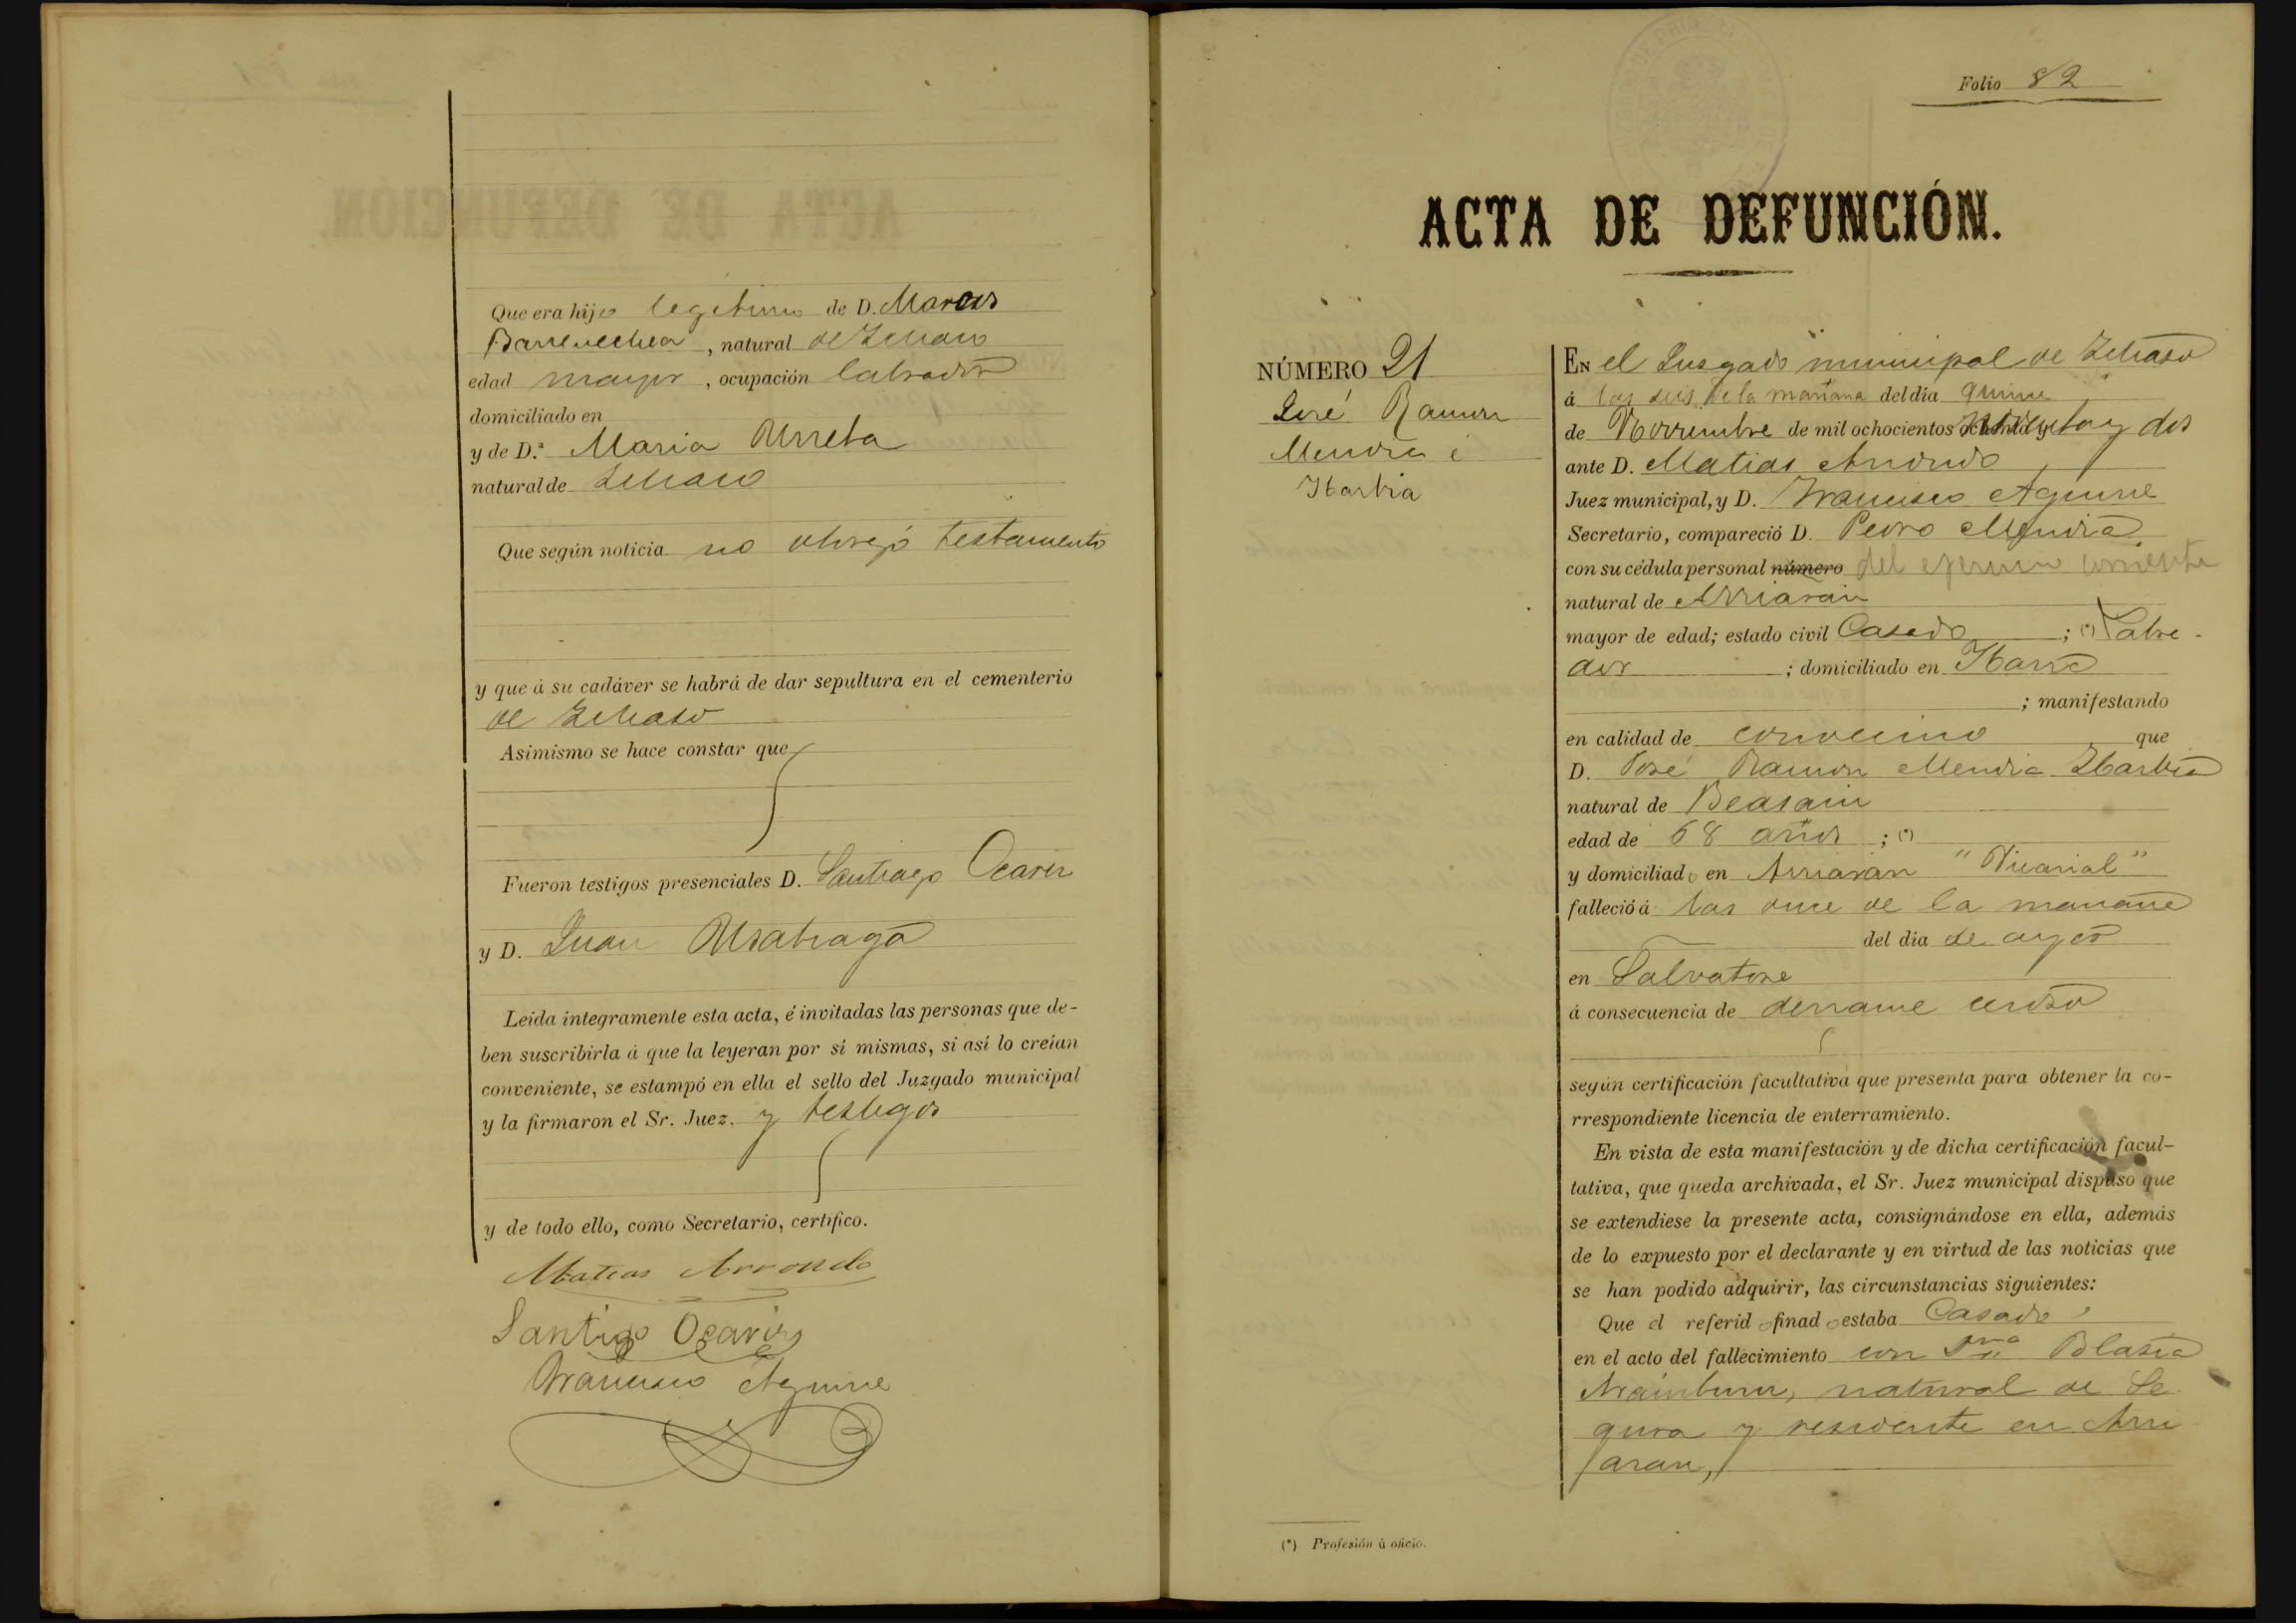 Que era hijo legitimo de D. Marcos
Barrenechea, natural de Ichaso
edad mayor, ocupación labrador
domiciliado en
y de D.ª Maria Urreta
natural de Ichaso
Que según noticia no otorgó testamento
y que á su cadáver se habrá de dar sepultura en el cementerio
de Ichaso
Asimismo se hace constar que
Fueron testigos presenciales D. Santiago Ocariz
y D. Juan Usabiaga
Leida íntegramente esta acta, é invitadas las personas que de-
ben suscribirla á que la leyeran por sí mismas, si así lo creían
conveniente, se estampó en ella el sello del Juzgado municipal
y la firmaron el Sr. Juez, y testigos
y de todo ello, como Secretario, certifico.
Matias Arrondo
Santiago Ocariz
Francisco Aguirre
Folio 82
ACTA DE DEFUNCIÓN.
NÚMERO 21
José Ramon
Mendia é
Ibarbia
EN el Jusgado municipal de Ichaso
á las seis de la mañana del día quince
de Noviembre de mil ochocientos noventa y dos
ante D. Matias Arrondo
Juez municipal, y D. Francisco Aguirre
Secretario, compareció D. Pedro Mendia
con su cédula personal número del corriente
natural de Arriaran
mayor de edad; estado civil Casado ; (*) Labra-
dor ; domiciliado en
; manifestando
en calidad de convecino que
D. José Ramon Mendia Ibarbia
natural de Beasain
edad de 68 años ; (*)
y domiciliado en Arriaran "Vicarial"
falleció á las once de la mañana
del dia de ayer
en Salvatore
á consecuencia de derrame ceroso
según certificación facultativa que presenta para obtener la co-
rrespondiente licencia de enterramiento.
En vista de esta manifestación y de dicha certificación facul-
tativa, que queda archivada, el Sr. Juez municipal dispuso que
se extendiese la presente acta, consignándose en ella, además
de lo expuesto por el declarante y en virtud de las noticias que
se han podido adquirir, las circunstancias siguientes:
Que el referido finado estaba Casado
en el acto del fallecimiento con Blasia
Aramburu, natural de Se
gura y residente en Arri
aran,
(*) Profesión ú oficio.